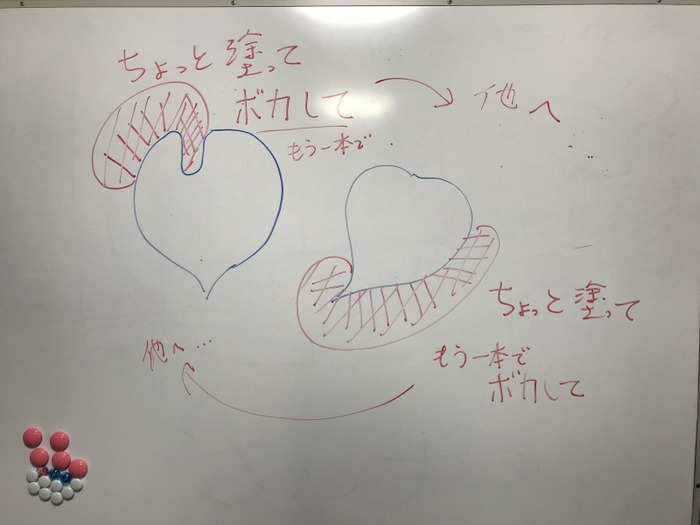 ちょっと 塗って
ボカして
もう一本で
他へ
ちょっと 塗って
もう一本で
ボカして
他へ…